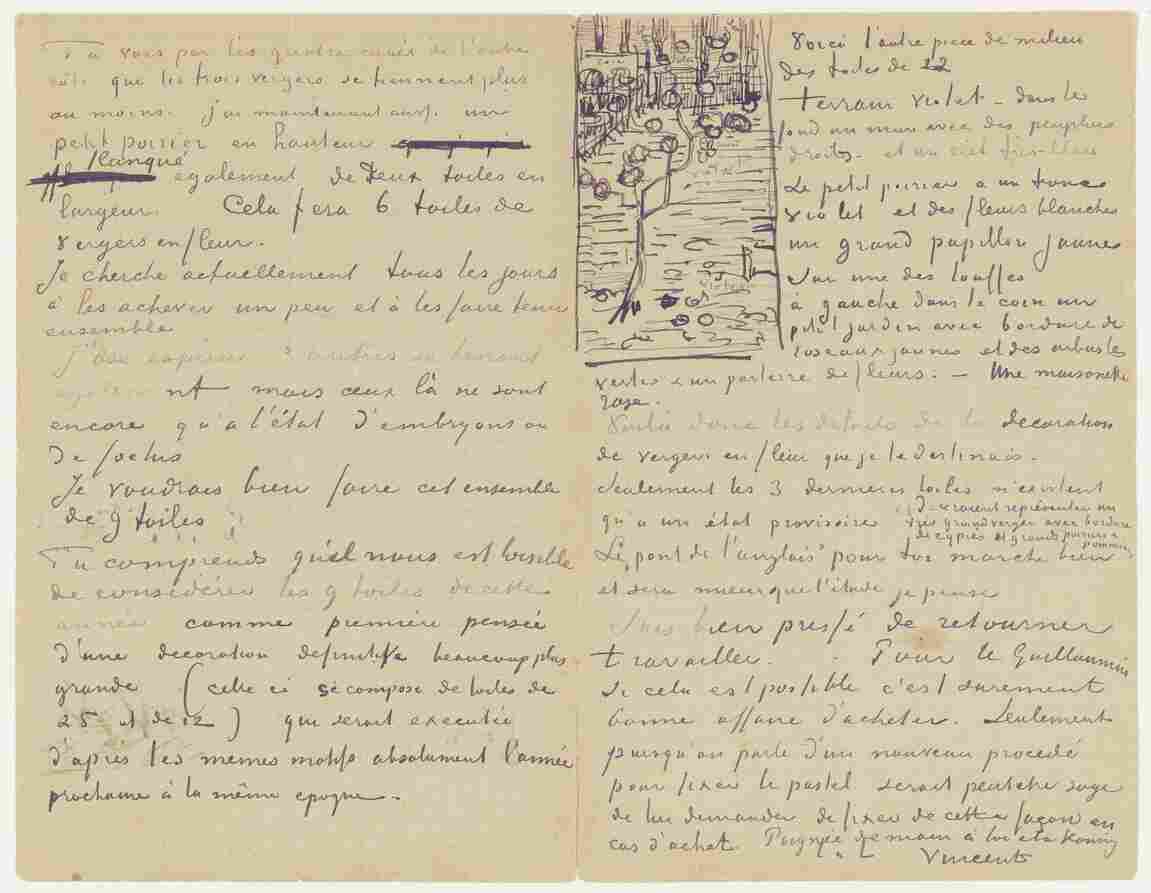 Tu vois par les quatre carrés de l'autre
côté que les trois vergers se tiennent plus
ou moins. j'ai maintenant aussi un
petit poirier en hauteur
flanqué également de deux toiles en
largeur. Cela fera 6 toiles de
vergers en fleur.
Je cherche actuellement tous les jours
à les achever un peu et à les faire tenir
ensemble
J'ose espérer 3 autres se tenant
nt mais ceux là ne sont
encore qu'à l'état d'embryons ou
de foetus
Je voudrais bien faire cet ensemble
de 9 toiles
Tu comprends qu'el nous est loisible
de considérer les 9 toiles de cette
année comme première pensée
d'une decoration definitive beaucoup plus
grande (celle ci se compose de toiles de
25 et de 12) qui serait executée
d'après les memes motifs absolument l'année
prochaine à la même epoque.
Voici l'autre piece de milieu
des toiles de 12
terrain violet – dans le
fond un mur avec des peupliers
droits. et un ciel très bleu
Le petit poirier a un tronc
violet et des fleurs blanches
un grand papillon jaune
sur une des touffes
à gauche dans le coin un
petit jardin avec bordure de
roseaux jaunes et des arbustes
verts & un parterre de fleurs. – Une maisonette
rose.
Voila donc les details de la decoration
de vergers en fleur que je te destinais.
Seulement les 3 dernieres toiles n'existent
qu'à un état provisoire
devraient représenter un
très grand verger avec bordure
de cyprès et grands poiriers &
pommiers
Le "pont de l'anglais" pour toi marche bien
et sera mieux que l'étude je pense
Suis bien pressé de retourner
travailler. Pour le Guillaumin
si cela est possible c'est surement
bonne affaire d'acheter. Seulement
puisqu'on parle d'un nouveau procédé
pour fixer le pastel serait peutetre sage
de lui demander de fixer de cette façon en
cas d'achat. Poignée de main à toi et à Koning
Vincent